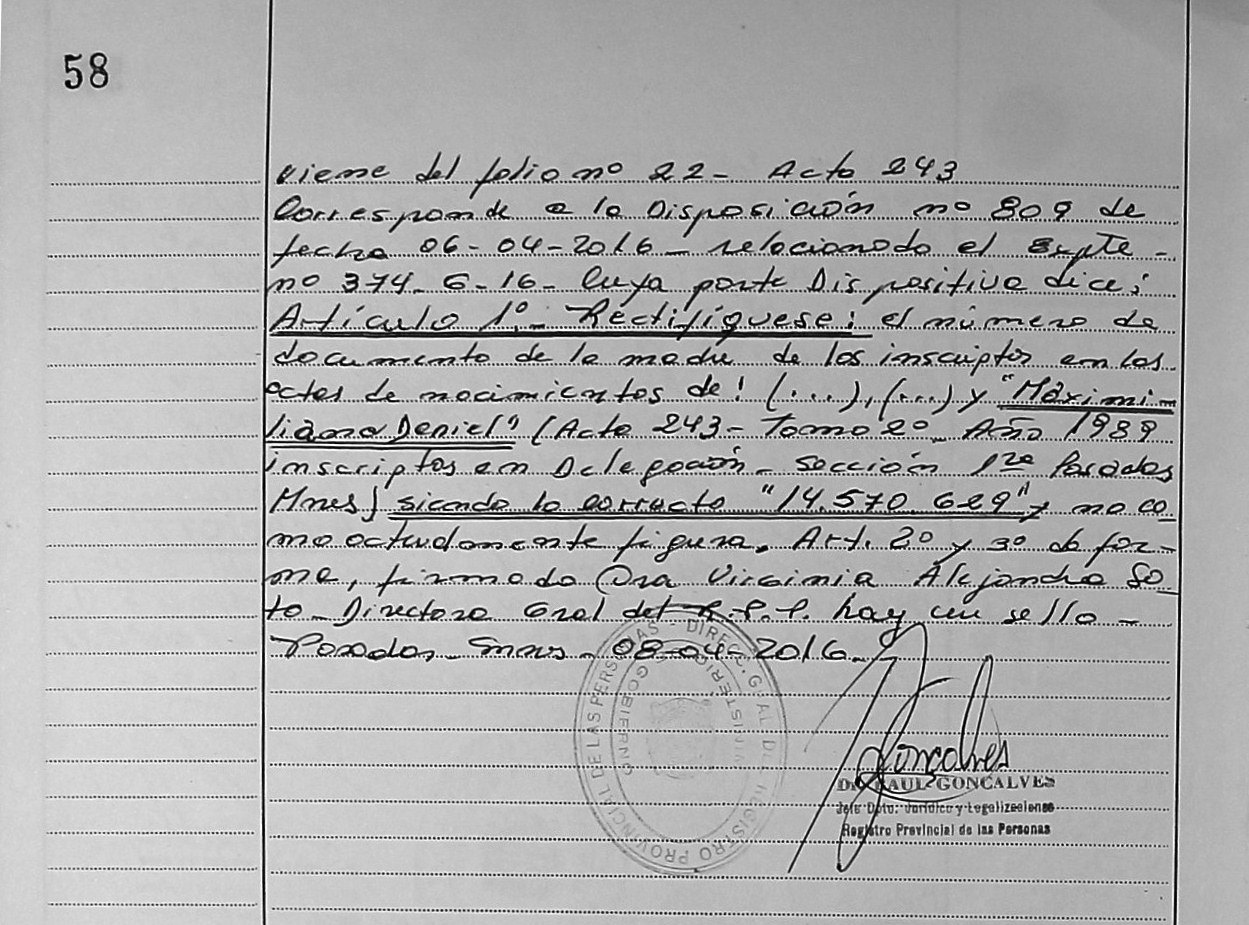 58
viene del folio nº 22- Acta 243
Corresponde a la Disposición nº 809 de
fecha 06-04-2016- relacionado el Expte-
nº 374-G-16- Cuya parte Dispositiva dice:
Artículo 1º- Rectifíquese: el número de
documento de la madre de los inscriptos en las
actas de nacimientos de: (...), (...) y "Maximi-
liano Daniel" (Acta 243- Tomo 2º- Año 1989
inscriptos en Delegación- Sección 1ra Posadas
Mnes) siendo lo correcto "14.570.629" y no co-
mo actualmente figura. Art. 2º y 3º de for-
ma, firmado Dra Virginia Alejandra So-
to- Directora Gral del R.P.P. hay un sello-
Posadas- Mnes- 08-04-2016-
REGISTRO PROVINCIAL DE LAS PERSONAS - DIREC. GRAL DEL
MINISTERIO GOBIERNO
Goncalves
Dr. RAUL GONCALVES
Jefe Dpto. Jurídico y Legalizaciones
Registro Provincial de las Personas